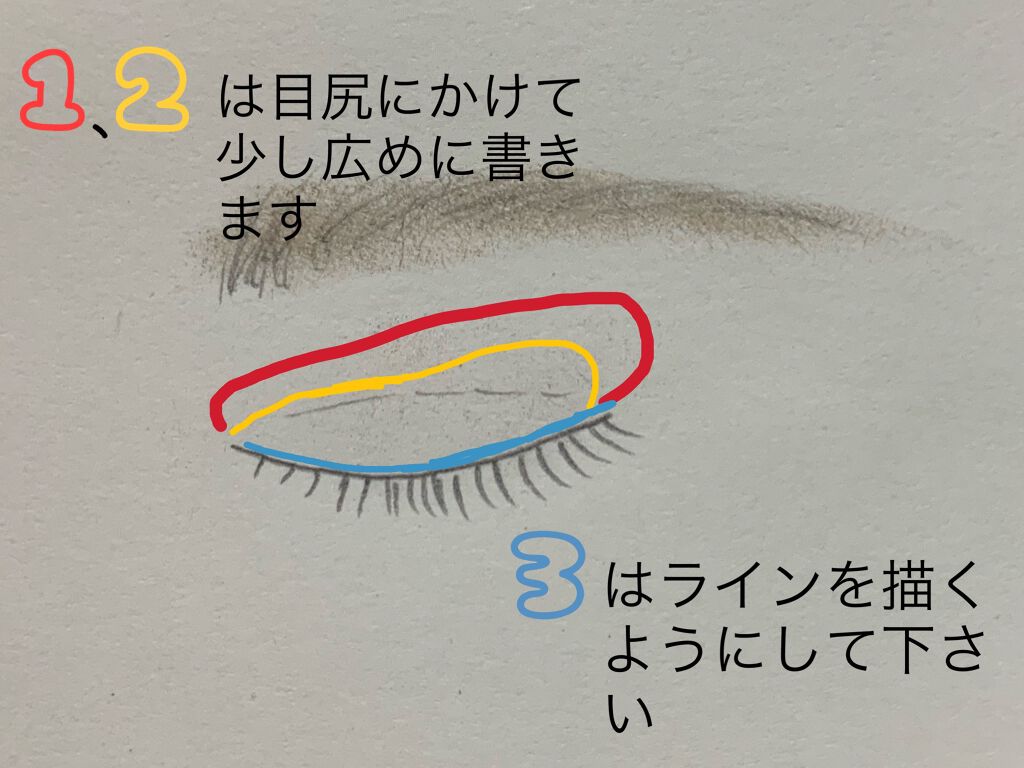 1、2は目尻にかけて
少し広めに書き
ます
3はラインを描く
ようにして下さ
い